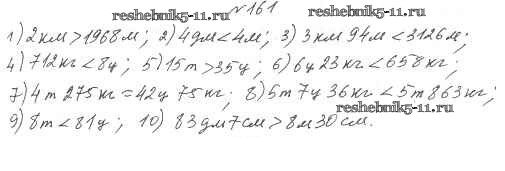 reshebnik5-11.ru №161 reshebnik5-11.ru
1) 2км > 1968м; 2) 4дм < 4м; 3) 3км 94м < 3126м;
4) 712кг < 8ц; 5) 15т > 35ц; 6) 6ц 23кг < 658кг;
7) 4т 275кг = 42ц 75кг; 8) 5т 7ц 36кг < 5т 863кг;
reshebnik5-11.ru
9) 8т < 81ц; 10) 83дм 7см > 8м 30см.